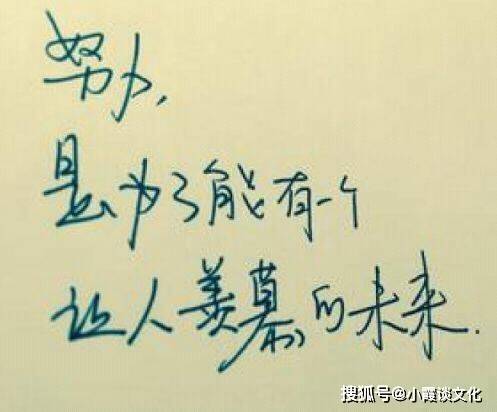 努力,
是为了能有一个
让人羡慕的未来.
搜狐号@小霞谈文化